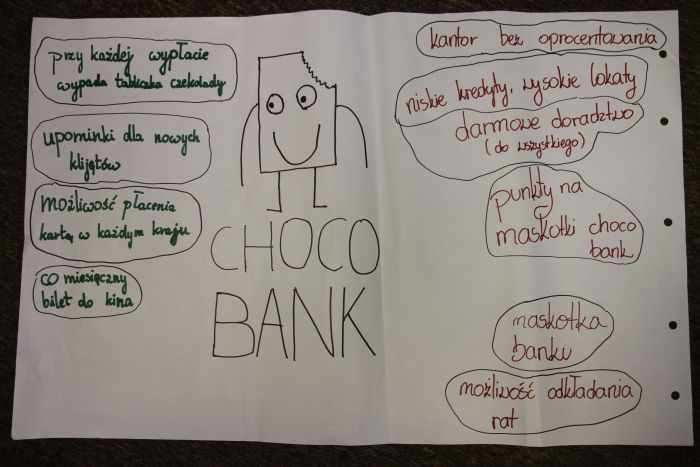 przy każdej wypłacie
wypada tabliczka czekolady
upominki dla nowych
klijętów
możliwość płacenia
kartą w każdym kraju
co miesięczny
bilet do kina
CHOCO
BANK
kantor bez oprocentowania
niskie kredyty, wysokie lokaty
darmowe doradztwo
(do wszystkiego)
punkty na
maskotki choco
bank
maskotka
banku
możliwość odkładania
rat